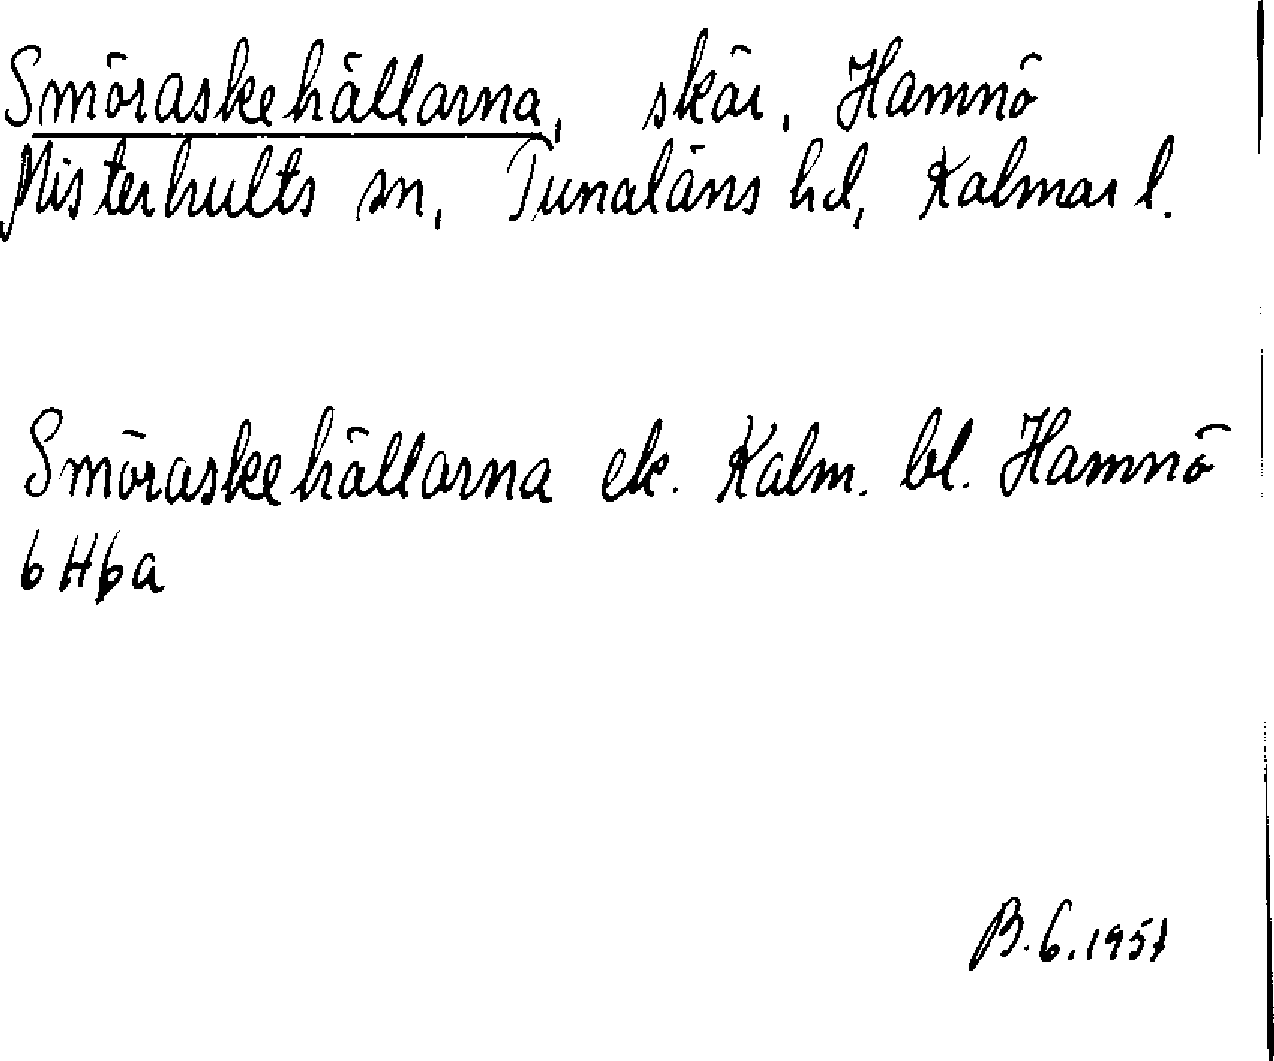 Smöraskehällarna, skär, Hamnö
Misterhults sn, Tunaläns hd, Kalmar l.
Smöraskehällarna ek. Kalm. bl. Hamnö
6H6a
B.G.1957